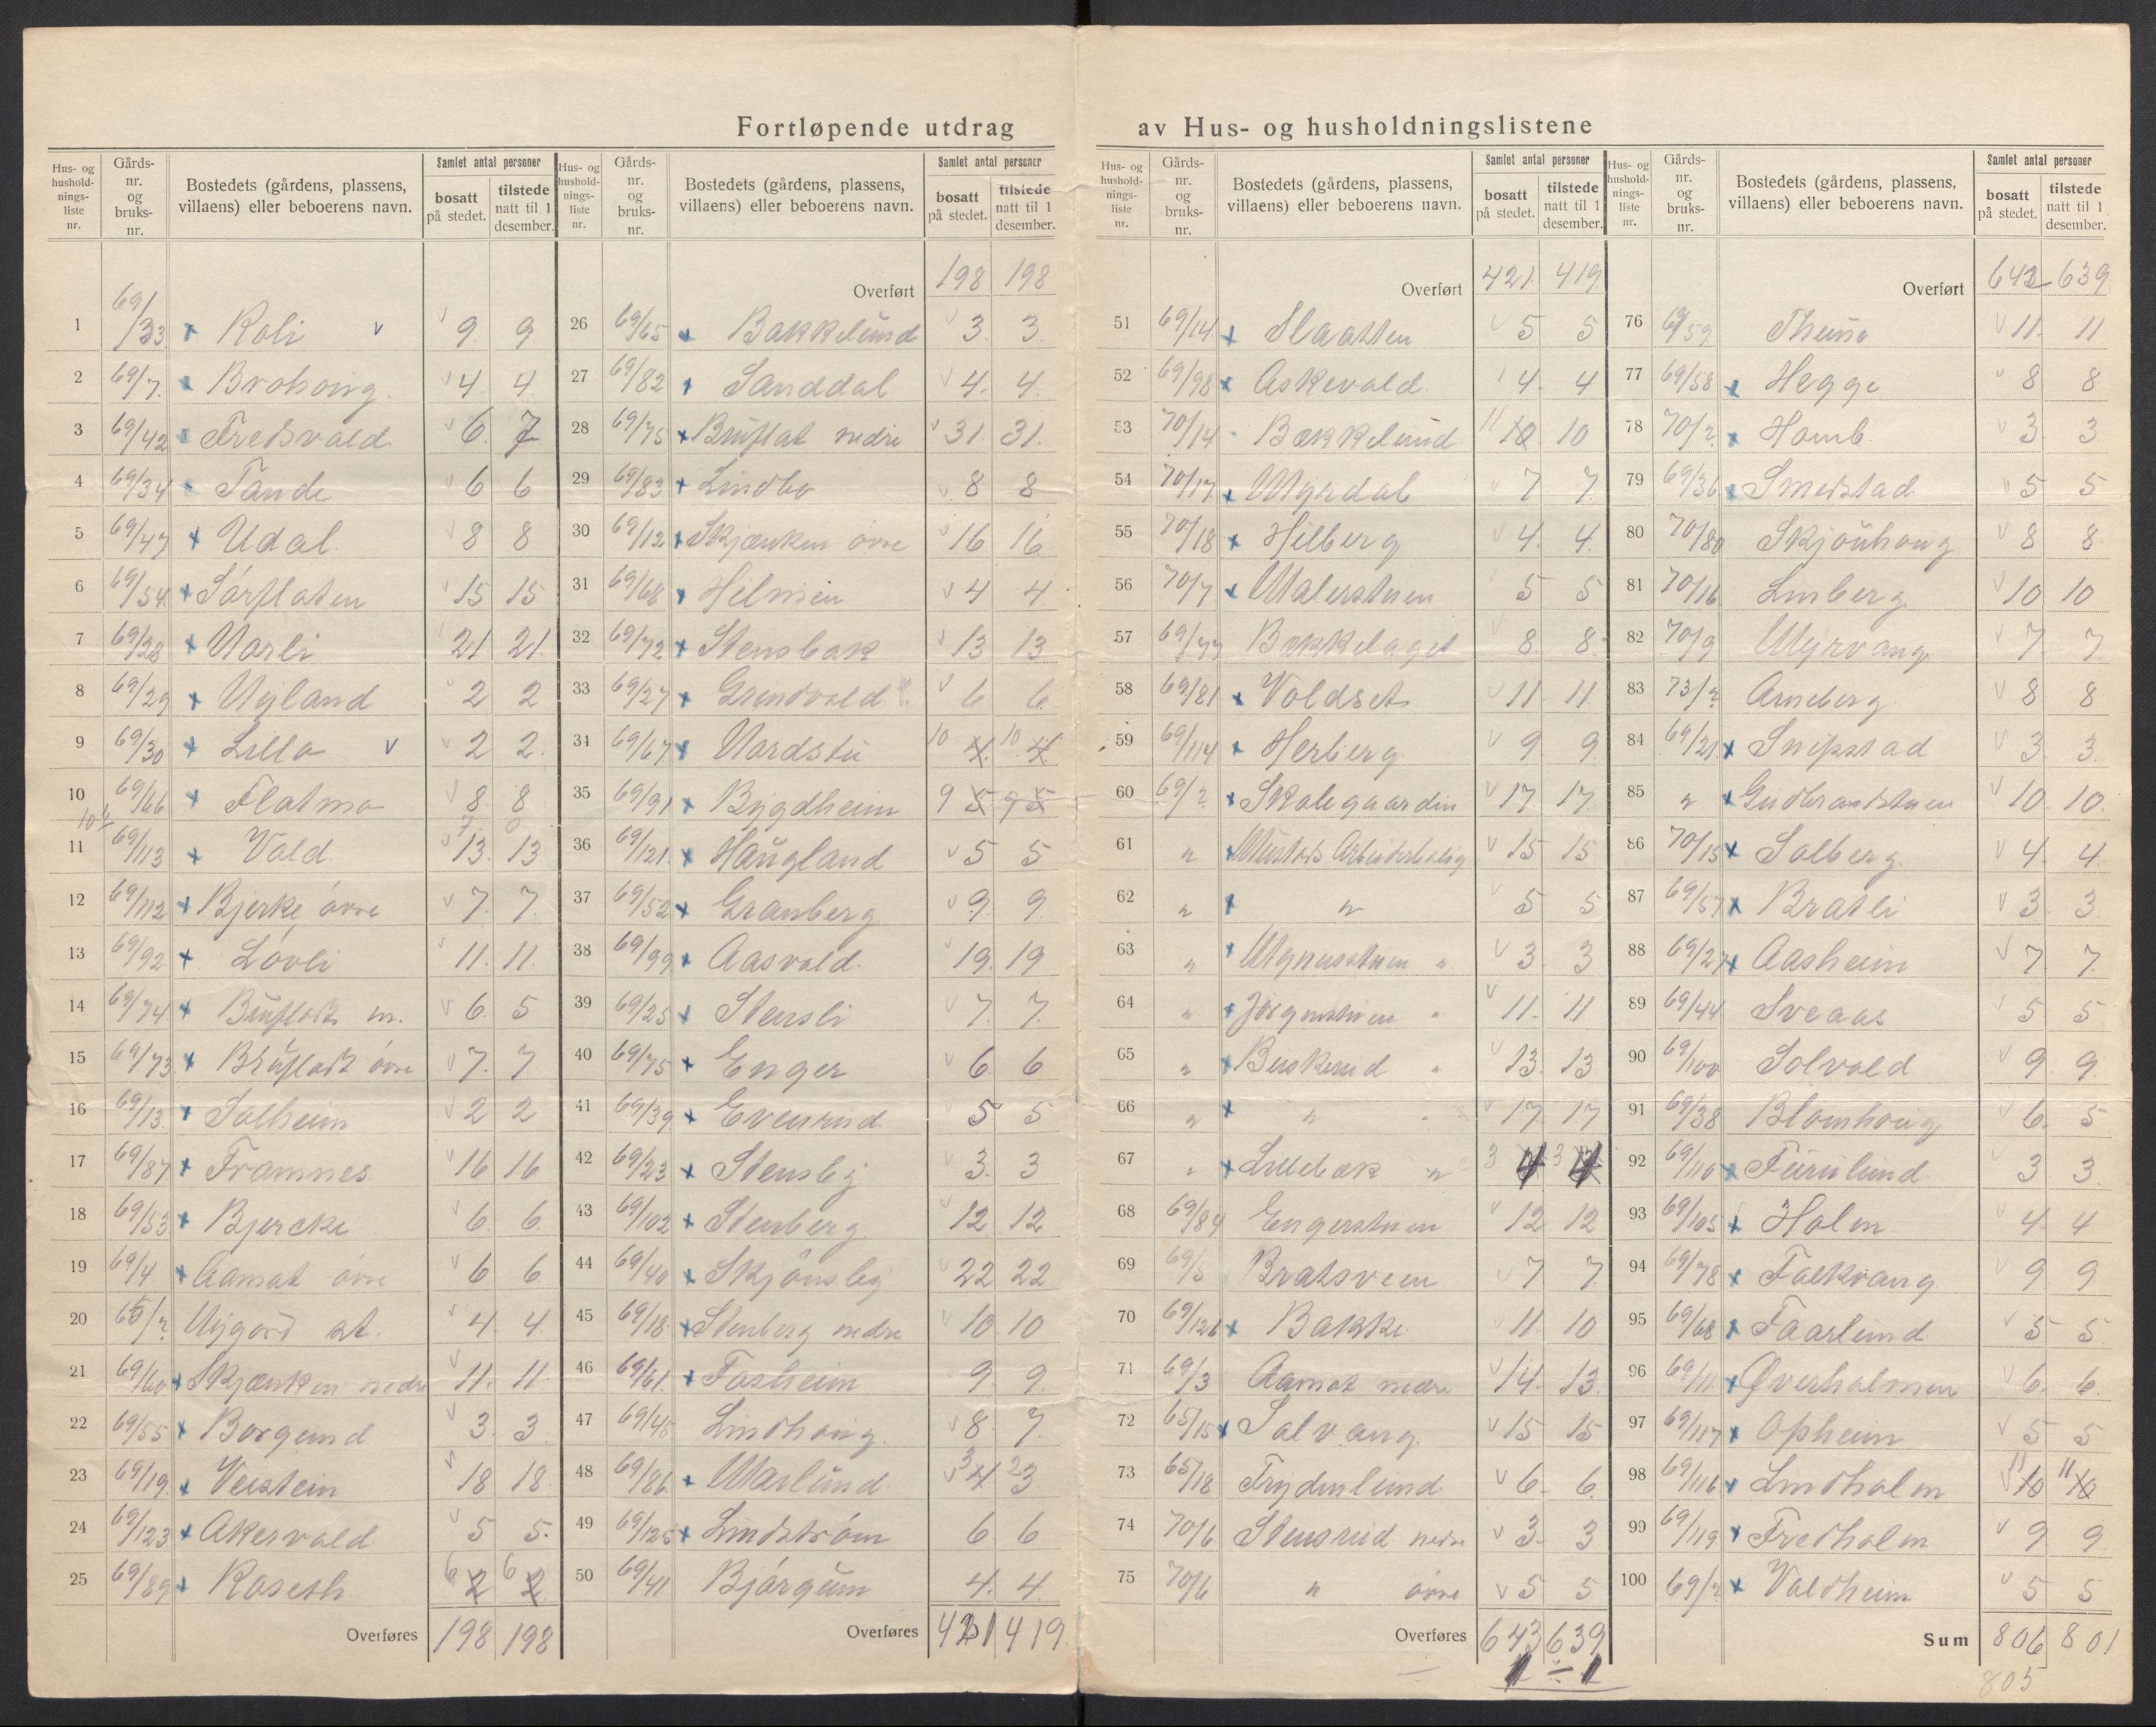 Fortløpende utdrag av Hus- og husholdningslistene
Hus- og hushold-nings-liste nr.
Gårds-nr. og bruks-nr.
Bostedets (gårdens, plassens, villaens) eller beboerens navn.
Samlet antal personer
bosatt på stedet.
tilstede natt til 1 desember.
1 69/33 Roli 9 9
2 69/7 Brohoug 4 4
3 69/42 Fredsvold 6 7
4 69/34 Tande 6 6
5 69/47 Udal 8 8
6 69/54 Sørflaten 15 15
7 69/28 Narli 21 21
8 69/29 Nyland 2 2
9 69/30 Lilla 2 2
10 69/66 Flatmo 8 8
11 69/113 Vold 13 13
12 69/112 Bjerke øvre 7 7
13 69/92 Lövli 11 11
14 69/74 Bruflatt m. 6 5
15 69/73 Bruflatt øvre 7 7
16 69/13 Solheim 2 2
17 69/87 Framnes 16 16
18 69/53 Bjercke 6 6
19 69/4 Aamot øvre 6 6
20 Nygård st. 4 4
21 69/60 Skjænken nedre 11 11
22 69/55 Borgund 3 3
23 69/19 Veistein 18 18
24 69/123 Akersvold 5 5
25 69/89 Roseth 6 2 6 2
Overføres 198 198
Hus- og hushold-nings-liste nr.
Gårds-nr. og bruks-nr.
Bostedets (gårdens, plassens, villaens) eller beboerens navn.
Samlet antal personer
bosatt på stedet.
tilstede natt til 1 desember.
Overført 198 198
26 69/65 Bakkelund 3 3
27 69/82 Sanddal 4 4
28 69/75 Bruflat nedre 31 31
29 69/83 Lindbo 8 8
30 69/12 Skjænken øvre 16 16
31 69/68 Hilmen 4 4
32 69/72 Stensbak 13 13
33 69/27 Grindvold 6 6
34 69/67 Nordstu 10 4 10 4
35 69/91 Bygdheim 9 5 9 5
36 69/121 Haugland 5 5
37 69/52 Granberg 9 9
38 69/99 Aasvold 19 19
39 69/25 Stensli 7 7
40 69/75 Enger 6 6
41 69/39 Evensrud 5 5
42 69/23 Stensby 3 3
43 69/102 Stenberg 12 12
44 69/40 Skjønsby 22 22
45 69/18 Stenberg nedre 10 10
46 69/61 Fosheim 9 9
47 69/45 Lindhaug 8 7
48 69/86 Marlund 3 4 2 3
49 69/125 Lindstrøm 6 6
50 69/41 Bjørgum 4 4
Overføres 421 419
Hus- og hushold-nings-liste nr.
Gårds-nr. og bruks-nr.
Bostedets (gårdens, plassens, villaens) eller beboerens navn.
Samlet antal personer
bosatt på stedet.
tilstede natt til 1 desember.
Overført 421 419
51 69/14 Slaatten 5 5
52 69/98 Askevold 4 4
53 70/14 Bakkelund 11 10 10
54 70/17 Myrdal 7 7
55 70/18 Hilberg 4 4
56 70/7 Malerstuen 5 5
57 69/77 Bakkelaget 8 8
58 69/81 Voldset 11 11
59 69/114 Herberg 9 9
60 69/2 Skolegaarden 17 17
61 " Mustads Arbeiderbolig 15 15
62 " " 5 5
63 " " 3 3
64 " Jörgenstuen " 11 11
65 " Buskerud " 13 13
66 " " " 17 17
67 " Lillebæk " 3 4 3 4
68 69/84 Engerstuen 12 12
69 69/5 Bratsveen 7 7
70 69/126 Bakke 11 10
71 69/3 Aamot nedre 14 13
72 65/15 Solvang 15 15
73 65/18 Frydenlund 6 6
74 70/6 Stensrud nedre 3 3
75 70/6 " øvre 5 5
Overføres 643 639
1 – 1
Hus- og hushold-nings-liste nr.
Gårds-nr. og bruks-nr.
Bostedets (gårdens, plassens, villaens) eller beboerens navn.
Samlet antal personer
bosatt på stedet.
tilstede natt til 1 desember.
Overført 642 639
76 69/59 11 11
77 69/58 Hegge 8 8
78 70/2 Homb 3 3
79 69/36 Smedstad 5 5
80 70/80 Skjønhoug 8 8
81 70/16 Linberg 10 10
82 70/9 Myrvang 7 7
83 73/2 Arneberg 8 8
84 69/21 Snipstad 3 3
85 " Gudbrandstuen 10 10
86 70/15 Solberg 4 4
87 69/57 Bratli 3 3
88 69/27 Aasheim 7 7
89 69/44 Sveaas 5 5
90 69/100 Solvold 9 9
91 69/38 Blomhoug 6 5
92 69/110 Furulund 3 3
93 69/105 Holm 4 4
94 69/78 Folkvang 9 9
95 69/68 Faarlund 5 5
96 69/11 Øverholmen 6 6
97 69/117 Opheim 5 5
98 69/116 Lindholm 11 10 11 10
99 69/119 Fredholm 9 9
100 69/2 Voldheim 5 5
Sum 806 801
805